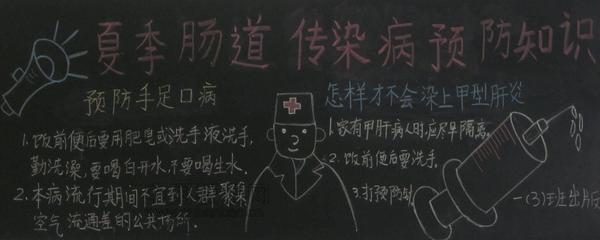 夏季肠道传染病预防知识
预防手足口病
1.饭前便后要用肥皂或洗手液洗手,
勤洗澡,要喝白开水,不要喝生水.
2.本病流行期间不宜到人群聚集
空气流通差的公共场所.
怎样才不会染上甲型肝炎
1.家有甲肝病人时应尽早隔离.
2.饭前便后要洗手.
3.打预防针
一(3)班出版